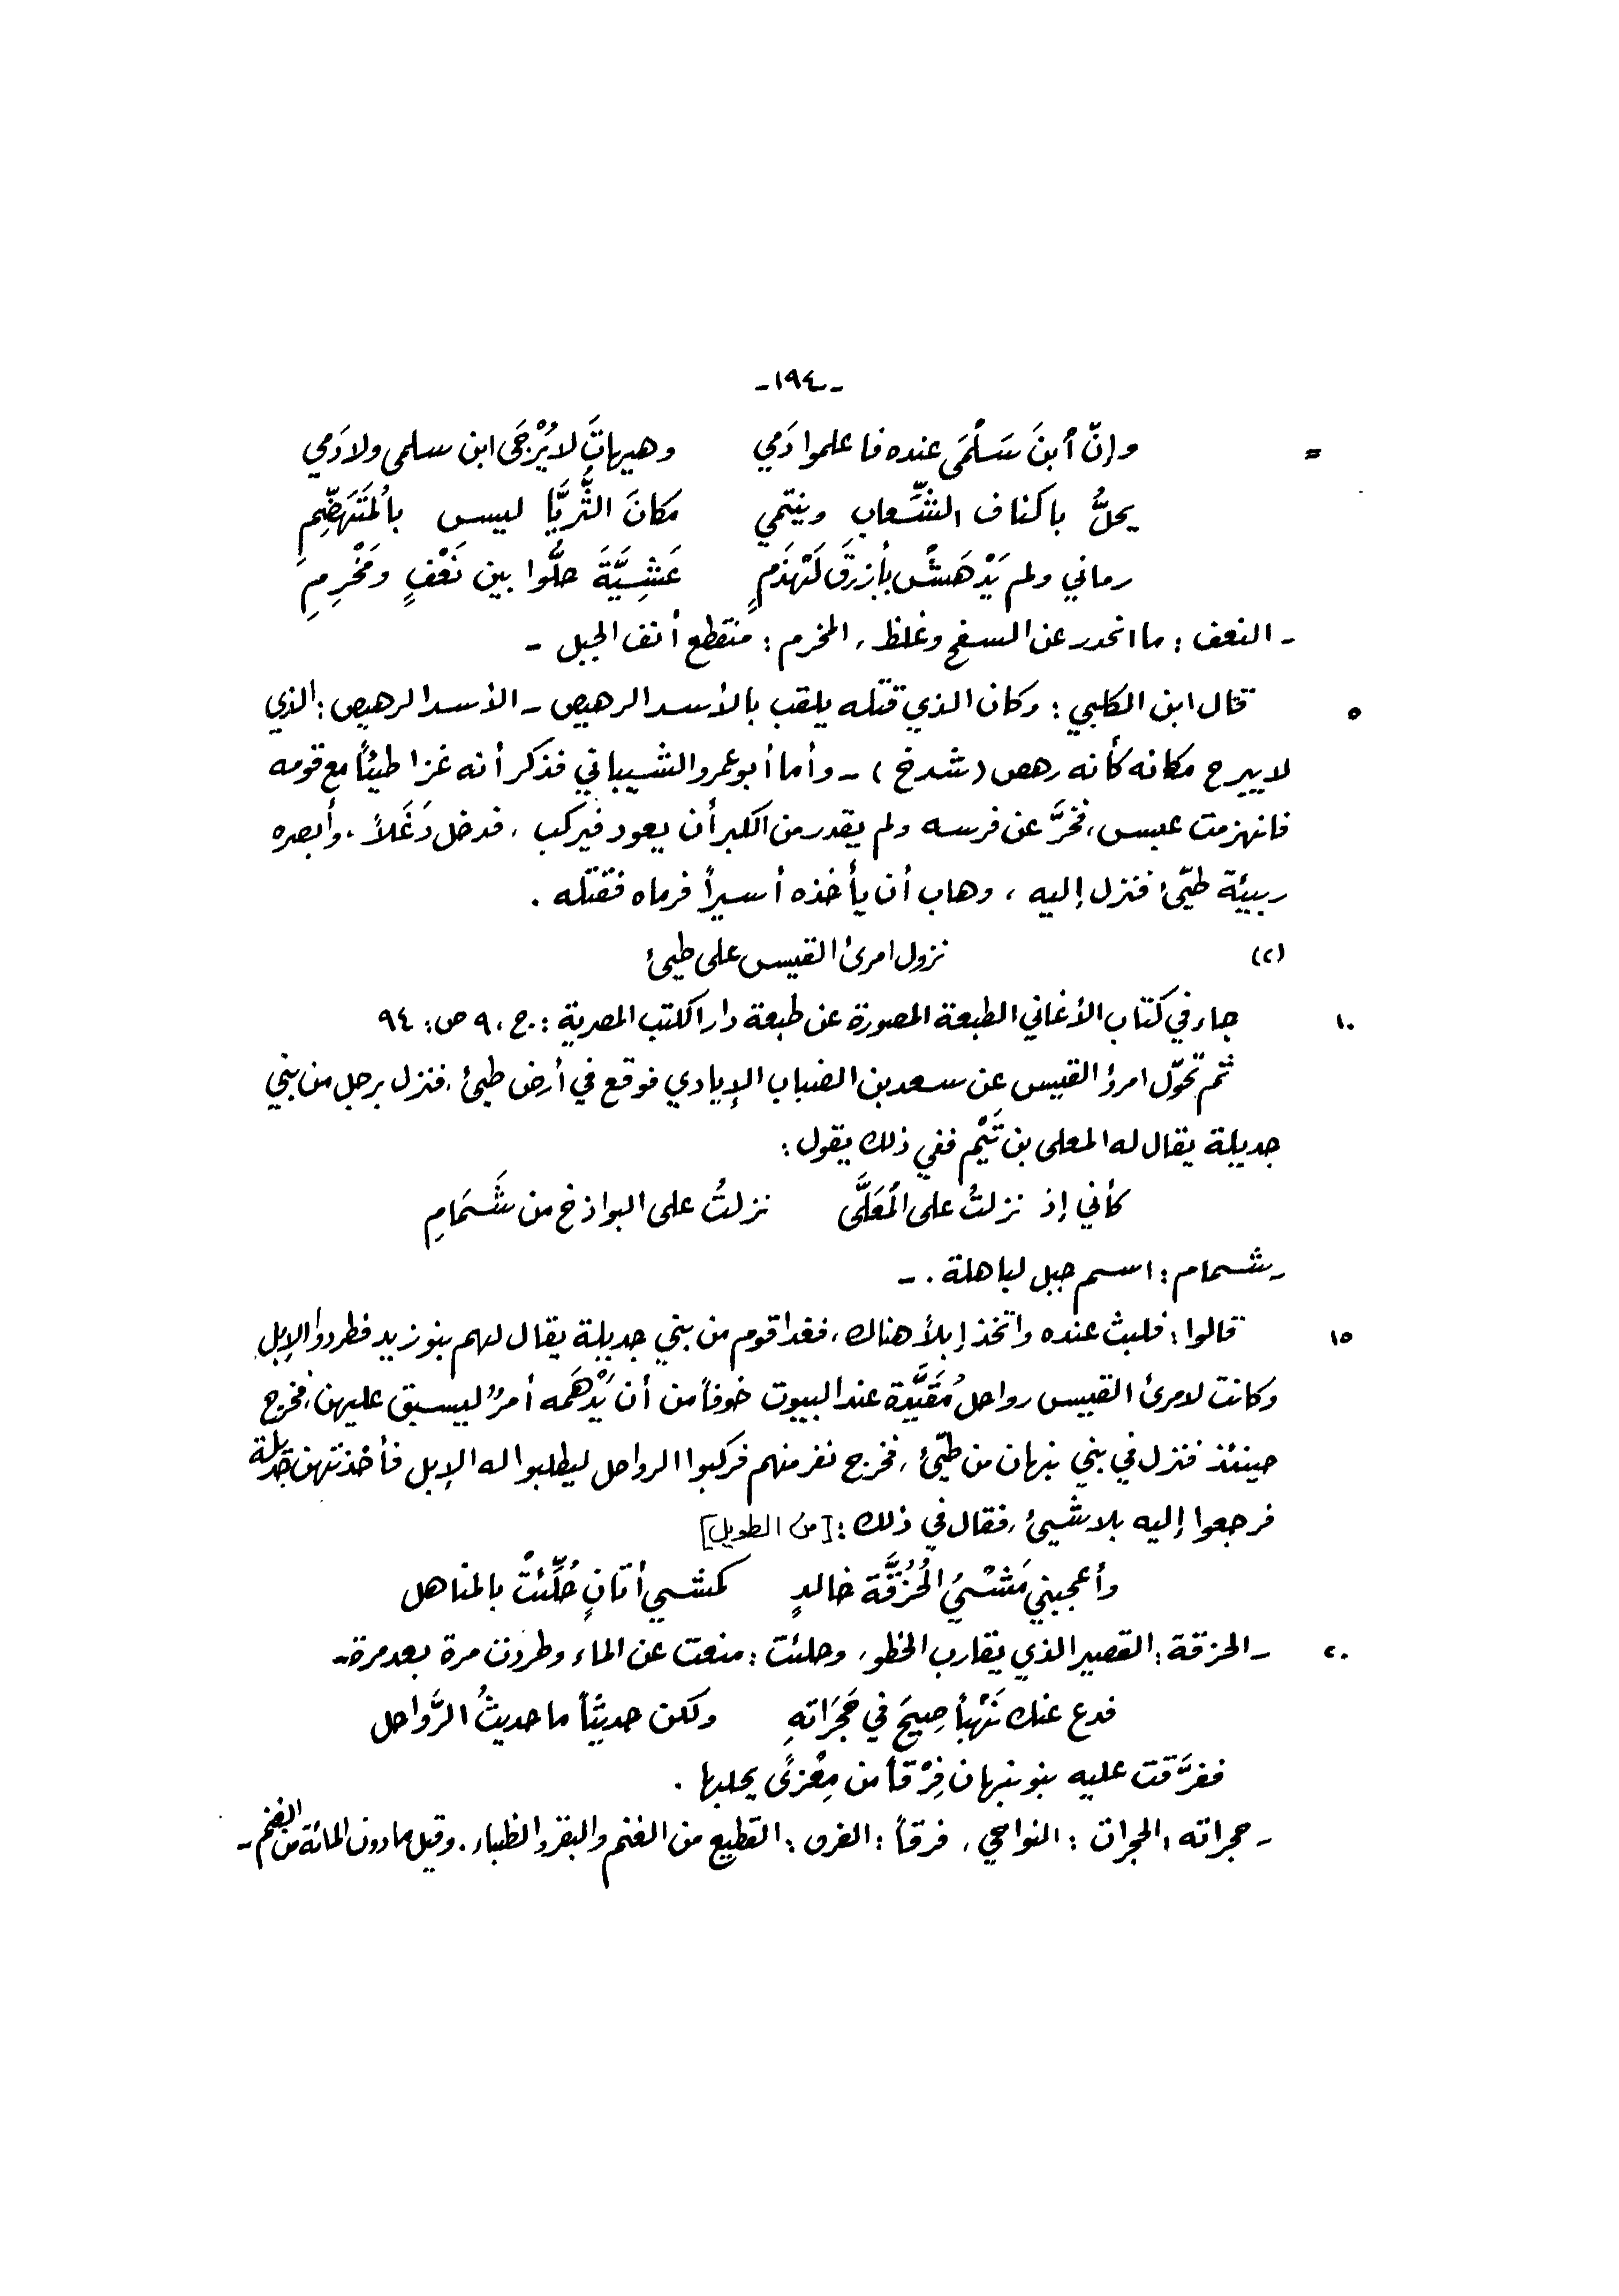 -١٩٤-
= وإنّ ٱبنَ سَلْمَى عنده فاعلموا دَمي وهيهاتَ لا يُرْجَى ابن سلمى ولا دَمي
يحلُّ بأكناف الشِّعاب وينتمي مكانَ الثُّرَيَّا ليس بٱلمُتَهَضِّمِ
رماني ولم يَدْهَشْ بأزرقَ لَهْذَمٍ عَشِيَّةَ حلُّوا بين نَعْفٍ ومَخْرِمِ
- النعف : ما انحدر عن السفح وغلظ ، المخرم : منقطع أنف الجبل -
٥ قال ابن الكلبي : وكان الذي قتله يلقب بالأسد الرهيص - الأسد الرهيص : الذي
لا يبرح مكانه كأنه رهص ( شدخ ) - وأما أبو عمرو الشيباني فذكر أنه غزا طيئاً مع قومه
فانهزمت عبس ، فخرَّ عن فرسه ولم يقدر من الكبر أن يعود فيركب ، فدخل دَغَلاً ، وأبصره
ربيئة طيّئ فنزل إليه ، وهاب أن يأخذه أسيراً فرماه فقتله .
(٢) نزول امرئ القيس على طيئ
١٠ جاء في كتاب الأغاني الطبعة المصورة عن طبعة دار الكتب المصرية : ج ، ٩ ص : ٩٤
ثم تحوّل امرؤ القيس عن سعد بن الضباب الإيادي فوقع في أرض طيئ ، فنزل برجل من بني
جديلة يقال له المعلى بن تَيْم ففي ذلك يقول :
كأني إذ نزلتُ على ٱلمُعَلَّى نزلتُ على البواذخ من شَمَامِ
- شمام : اسم جبل لباهلة . -
١٥ قالوا : فلبث عنده واتخذ إبلاً هناك ، فغدا قوم من بني جديلة يقال لهم بنو زيد فطردوا الإبل
وكانت لامرئ القيس رواحل مُقَيَّدة عند البيوت خوفاً من أن يَدْهَمه أمرٌ ليسبق عليهن ، فخرج
حينئذ فنزل في بني نبهان من طيّئ ، فخرج نفر منهم فركبوا الرواحل ليطلبوا له الإبل فأخذتهن جديلة
فرجعوا إليه بلا شيئ ، فقال في ذلك : [من الطويل]
وأعجبني مَشْيُ الحُزُقَّة خالدٍ كمشي أتانٍ حُلِّئتْ بالمناهل
٢٠ - الحزقة : القصير الذي يقارب الخطو ، وحلئت : منعت عن الماء وطردت مرة بعد مرة -
فدع عنك نَهْباً صِيحَ في حَجَرَاتهِ ولكن حديثاً ما حديثُ الرَّواحل
ففرَّقت عليه بنو نبهان فِرْقاً من مِعْزىً يحلبها .
- حجراته : الحجرات : النواحي ، فرقاً : الفرق : القطيع من الغنم والبقر والظباء . وقيل ما دون المائة من الغنم -